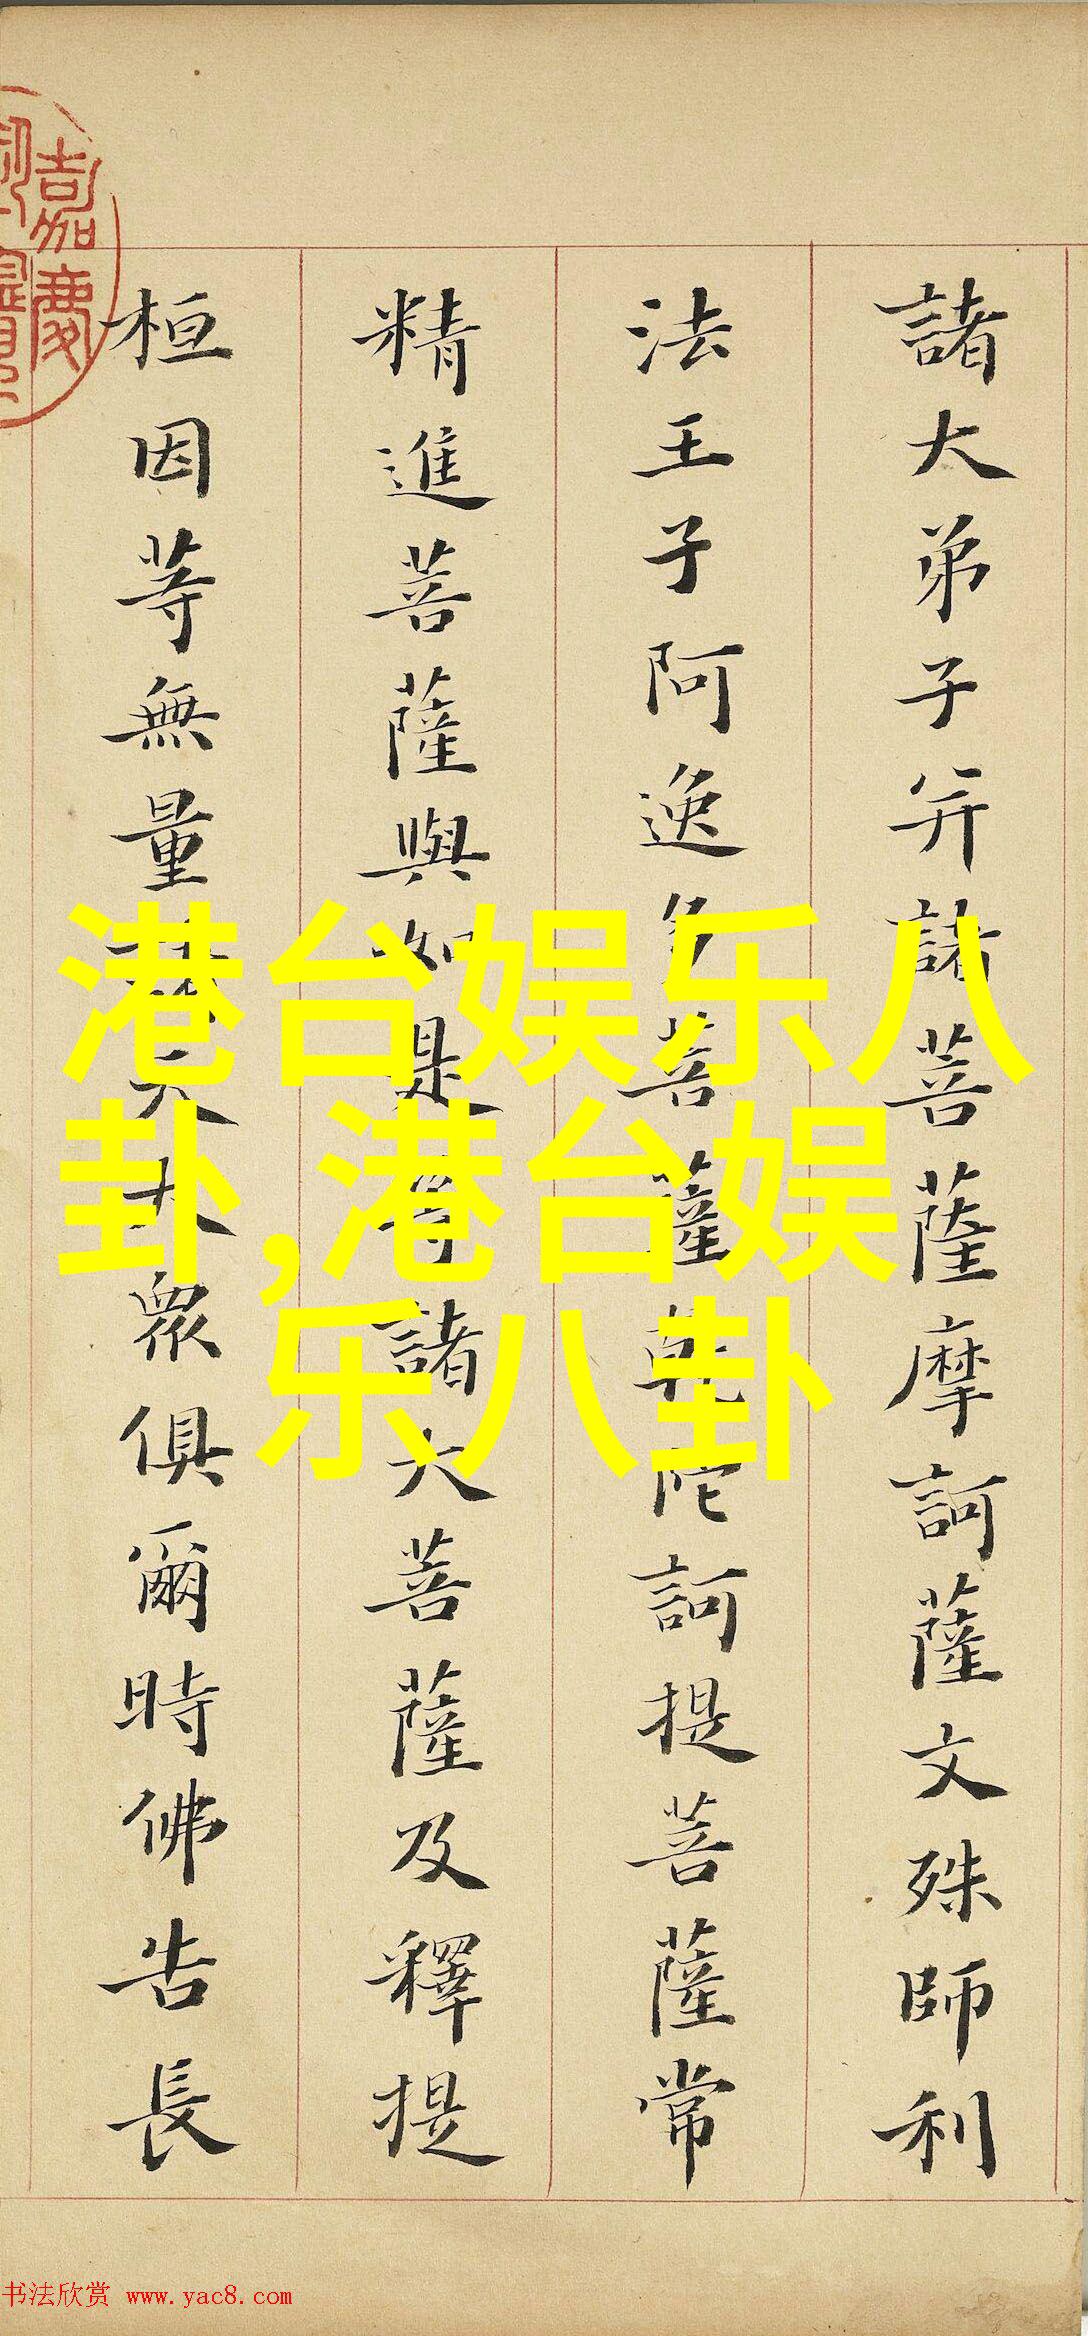 諸大弟子并諸菩薩摩訶薩文殊師利
法王子阿逸多菩薩乾陀訶提菩薩常
精進菩薩與如是等諸大菩薩及釋提
桓因等無量諸天大眾俱爾時佛告長
嘉慶
港台娱乐八
卦,港台娱
乐八卦
书法欣赏 www.yac8.com